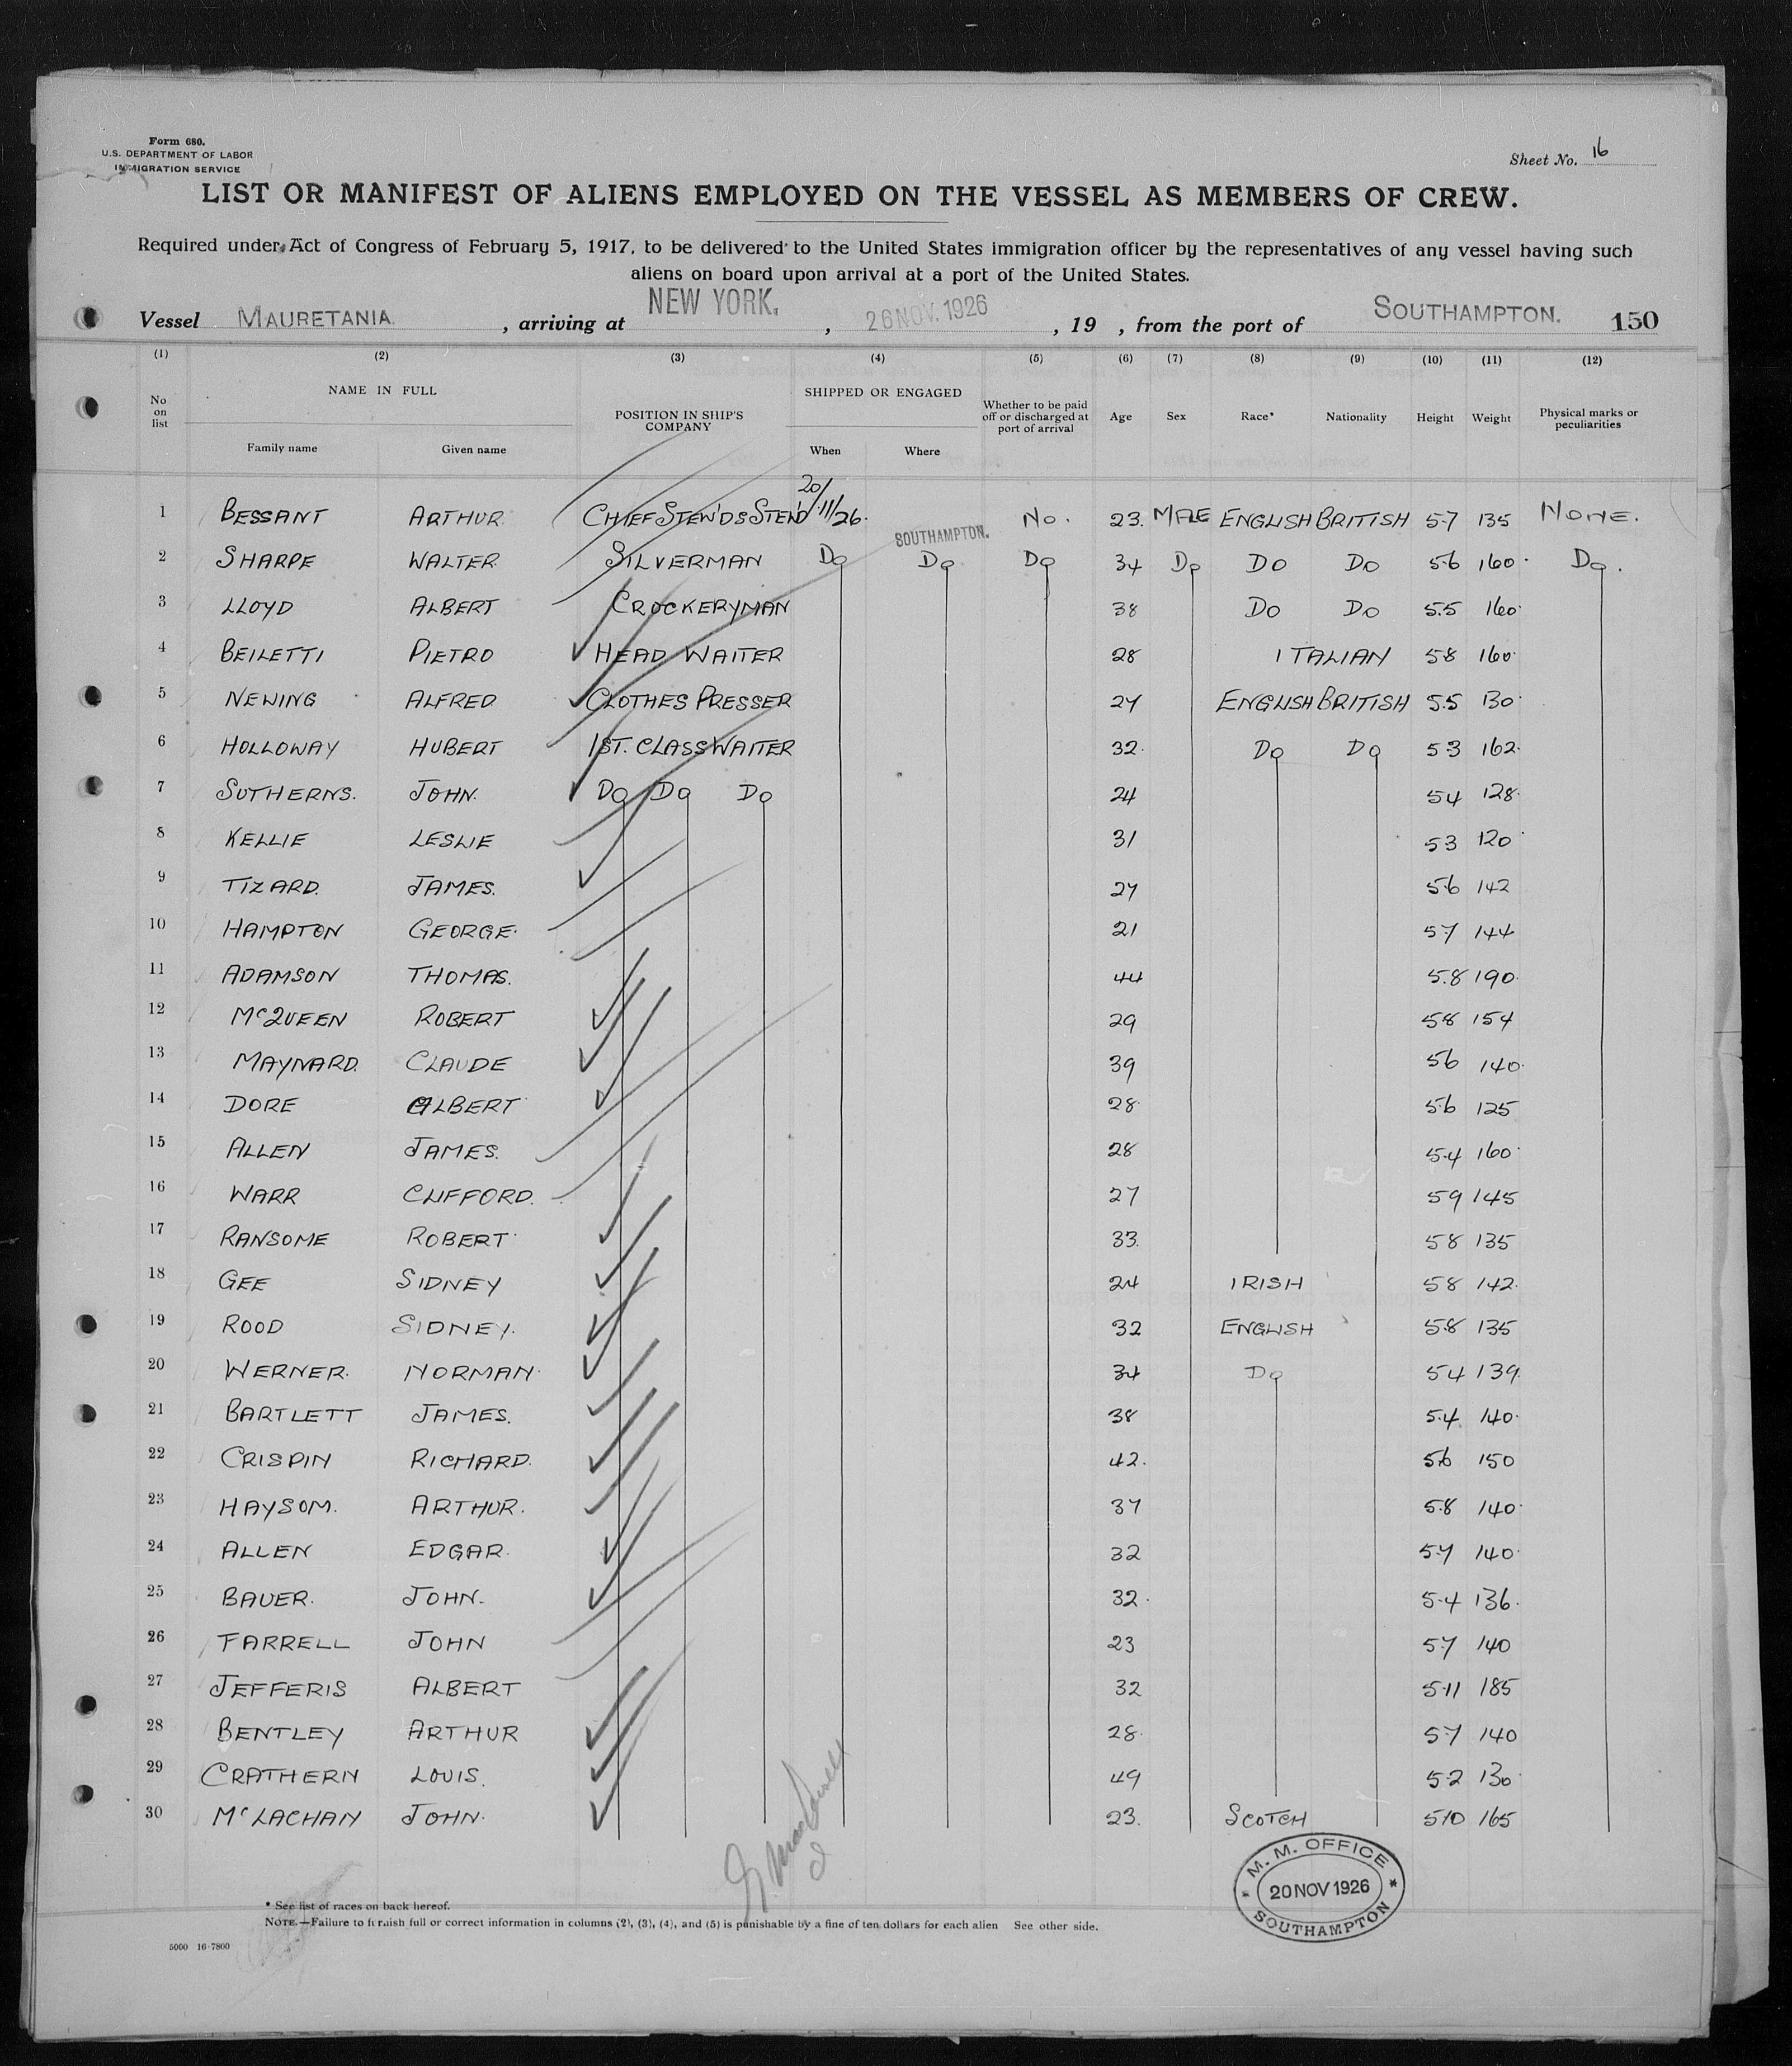 Form 680.
U.S. DEPARTMENT OF LABOR
IMMIGRATION SERVICE
Sheet No. 16
LIST OR MANIFEST OF ALIENS EMPLOYED ON THE VESSEL AS MEMBERS OF CREW.
Required under Act of Congress of February 5, 1917, to be delivered to the United States immigration officer by the representatives of any vessel having such
aliens on board upon arrival at a port of the United States.
Vessel MAURETANIA , arriving at NEW YORK. , 26 NOV. 1926 , 19 , from the port of SOUTHAMPTON. 150
(1) (2) (3) (4) (5) (6) (7) (8) (9) (10) (11) (12)
No on list NAME IN FULL Family name Given name POSITION IN SHIP'S COMPANY SHIPPED OR ENGAGED When Where Whether to be paid off or discharged at port of arrival Age Sex Race* Nationality Height Weight Physical marks or peculiarities
1 BESSANT ARTHUR CHIEF STEW'DS STEW'D 20/11/26. SOUTHAMPTON. No. 23. MALE ENGLISH BRITISH 5.7 135 NONE.
2 SHARPE WALTER SILVERMAN Do Do Do 34 Do Do Do 5.6 160 Do.
3 LLOYD ALBERT CROCKERYMAN 38 Do Do 5.5 160
4 BEILETTI PIETRO HEAD WAITER 28 ITALIAN 5.8 160
5 NEWING ALFRED CLOTHES PRESSER 27 ENGLISH BRITISH 5.5 130
6 HOLLOWAY HUBERT 1ST. CLASS WAITER 32. Do Do 5.3 162
7 SUTHERNS. JOHN. Do Do Do 24 5.4 128
8 KELLIE LESLIE 31 5.3 120
9 TIZARD. JAMES. 27 5.6 142
10 HAMPTON GEORGE. 21 5.7 144
11 ADAMSON THOMAS. 44 5.8 190
12 McQUEEN ROBERT 29 5.8 154
13 MAYNARD. CLAUDE 39 5.6 140
14 DORE ALBERT 28 5.6 125
15 ALLEN JAMES. 28 5.4 160
16 WARR CLIFFORD. 27 5.9 145
17 RANSOME ROBERT 33. 5.8 135
18 GEE SIDNEY 24 IRISH 5.8 142
19 ROOD SIDNEY. 32 ENGLISH 5.8 135
20 WERNER. NORMAN. 34 Do 5.4 139
21 BARTLETT JAMES. 38 5.4 140
22 CRISPIN RICHARD. 42. 5.6 150
23 HAYSOM. ARTHUR. 37 5.8 140
24 ALLEN EDGAR. 32 5.7 140
25 BAUER. JOHN. 32. 5.4 136
26 FARRELL JOHN 23 5.7 140
27 JEFFERIS ALBERT 32 5.11 185
28 BENTLEY ARTHUR 28. 5.7 140
29 CRATHERN LOUIS. 49 5.2 130
30 McLACHAN JOHN. 23. SCOTCH 5.10 165
M. M. OFFICE
20 NOV 1926
SOUTHAMPTON
* See list of races on back hereof.
NOTE.—Failure to furnish full or correct information in columns (2), (3), (4), and (5) is punishable by a fine of ten dollars for each alien See other side.
5000 16-7800